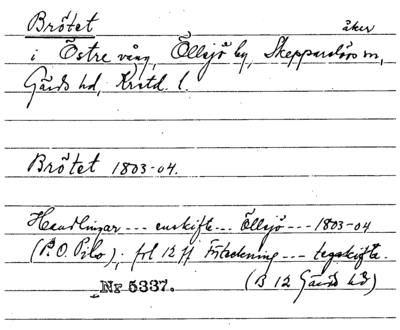 Brötet åker
i Östre vång, Ellsjö by, Skepparslövs sn,
Gärds hd, Krstd. l.
Brötet 1803-04.
Handlingar --- enskifte --- Ellsjö --- 1803-04
(P. O. Pilo); fol 12 ff Förteckning --- tegskifte.
Nr 5337. (B 12 Gärds hd)